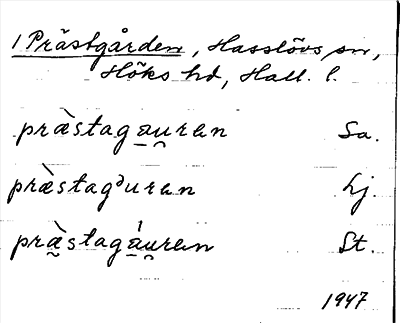 1 Prästgården, Hasslövs sn,
Höks hd, Hall. l.
præ̀staga̠u̯ran Sa.
præ̀stagᵊuran Lj.
præ̀stagá̠u̯ran St.
1947